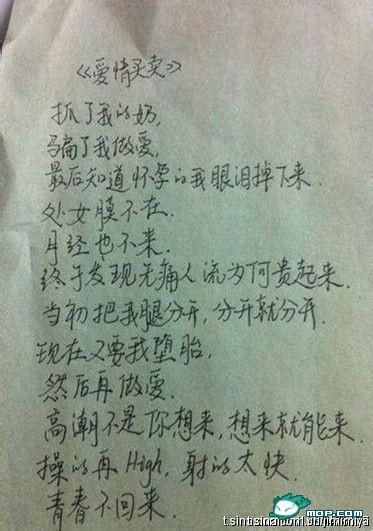 《爱情买卖》
抓了我的奶,
骗了我做爱,
最后知道怀孕的我眼泪掉下来.
处女膜不在.
月经也不来.
终于发现无痛人流为何贵起来.
当初把我腿分开,分开就分开.
现在又要我堕胎,
然后再做爱.
高潮不是你想来,想来就能来.
操的再High,射的太快.
青春不回来.
MOP.COM